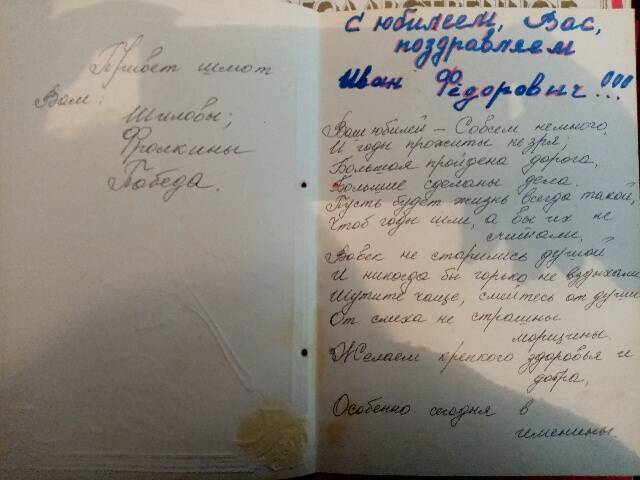 Привет шлют
Вам:
Шиловы;
Фролкины
Победа.
С юбилеем, Вас,
поздравляем
Иван Фёдорович!!!
Ваш юбилей – Совсем немного,
И годы прожиты не зря;
Большая пройдена дорога,
Большие сделаны дела.
Пусть будет жизнь всегда такой,
Чтоб годы шли, а вы их не
считали,
Вовек не старились душой
И никогда бы горько не вздыхали
Шутите чаще, смейтесь от души
От смеха не страшны
морщины.
Желаем крепкого здоровья и
добра,
Особенно сегодня в
именины.